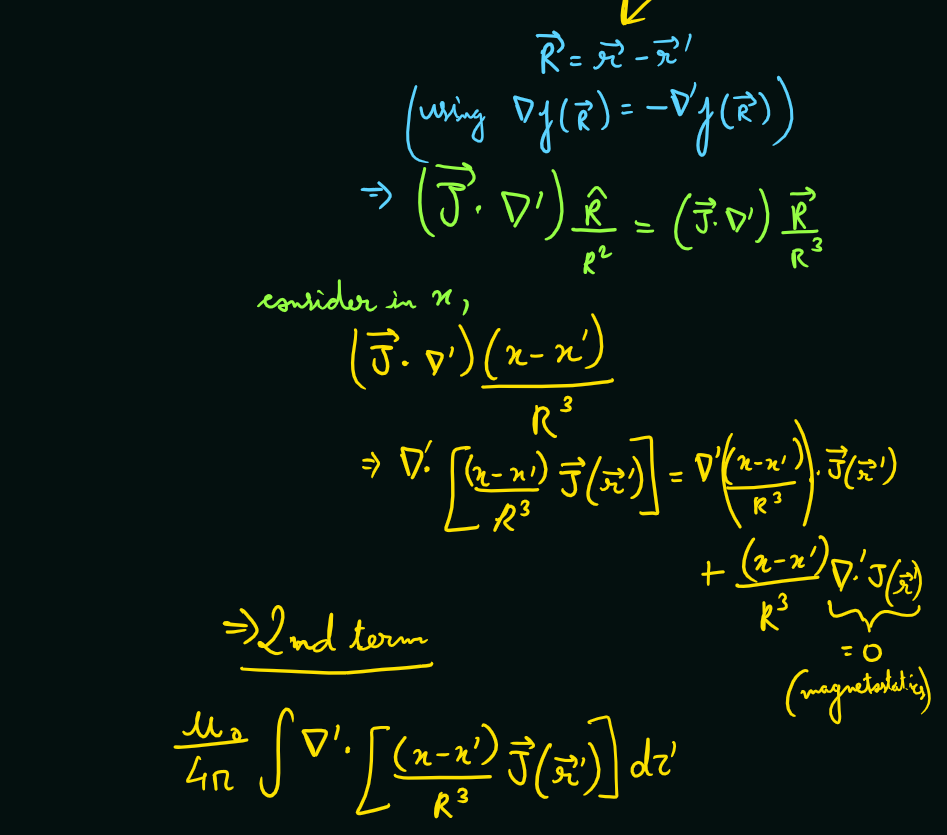 R⃗ = r⃗ - r⃗'
(using ∇f(R⃗) = -∇'f(R⃗))
⇒ (J⃗ · ∇') R̂/R² = (J⃗·∇') R⃗/R³
consider in x,
(J⃗ · ∇') (x-x')/R³
⇒ ∇'· [(x-x')/R³ J⃗(r⃗')] = ∇'((x-x')/R³) · J⃗(r⃗')
+ (x-x')/R³ ∇·' J(r⃗')
= 0
(magnetostatics)
⇒ 2nd term
μ₀/4π ∫ ∇'· [(x-x')/R³ J⃗(r⃗')] dτ'